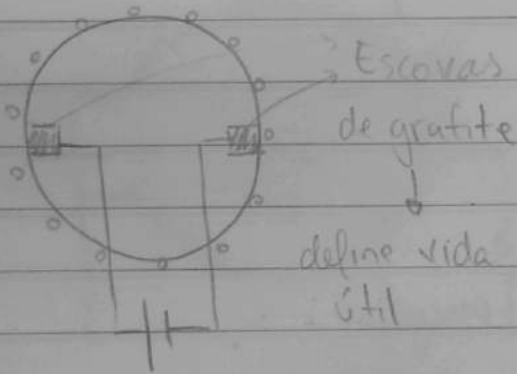 Escovas
de grafite
define vida
útil